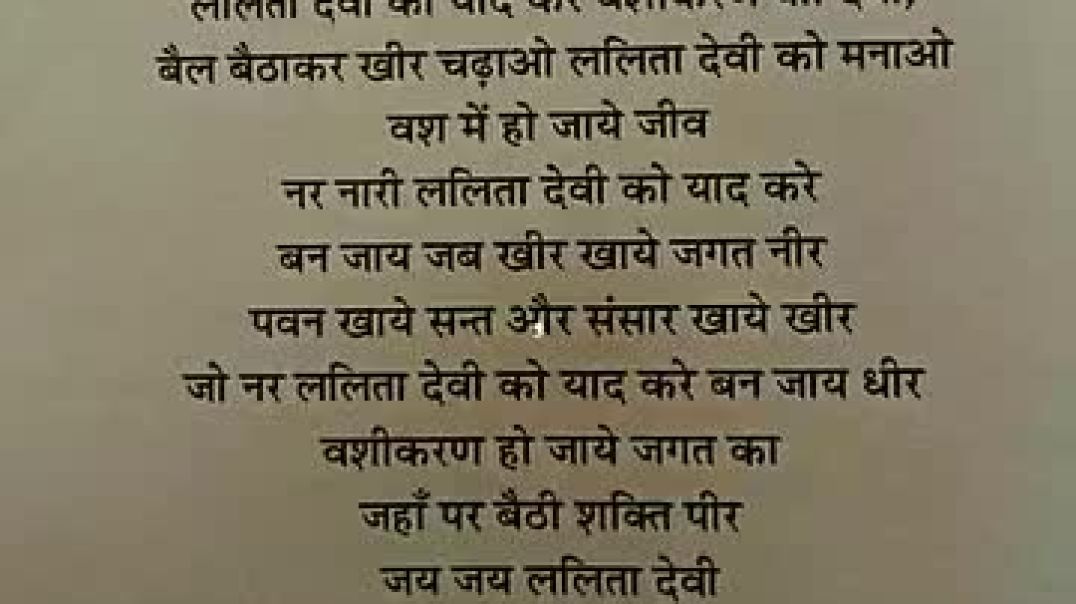 ललिता देवी को याद कर वशीकरण
बैल बैठाकर खीर चढ़ाओ ललिता देवी को मनाओ
वश में हो जाये जीव
नर नारी ललिता देवी को याद करे
बन जाय जब खीर खाये जगत नीर
पवन खाये सन्त और संसार खाये खीर
जो नर ललिता देवी को याद करे बन जाय धीर
वशीकरण हो जाये जगत का
जहाँ पर बैठी शक्ति पीर
जय जय ललिता देवी